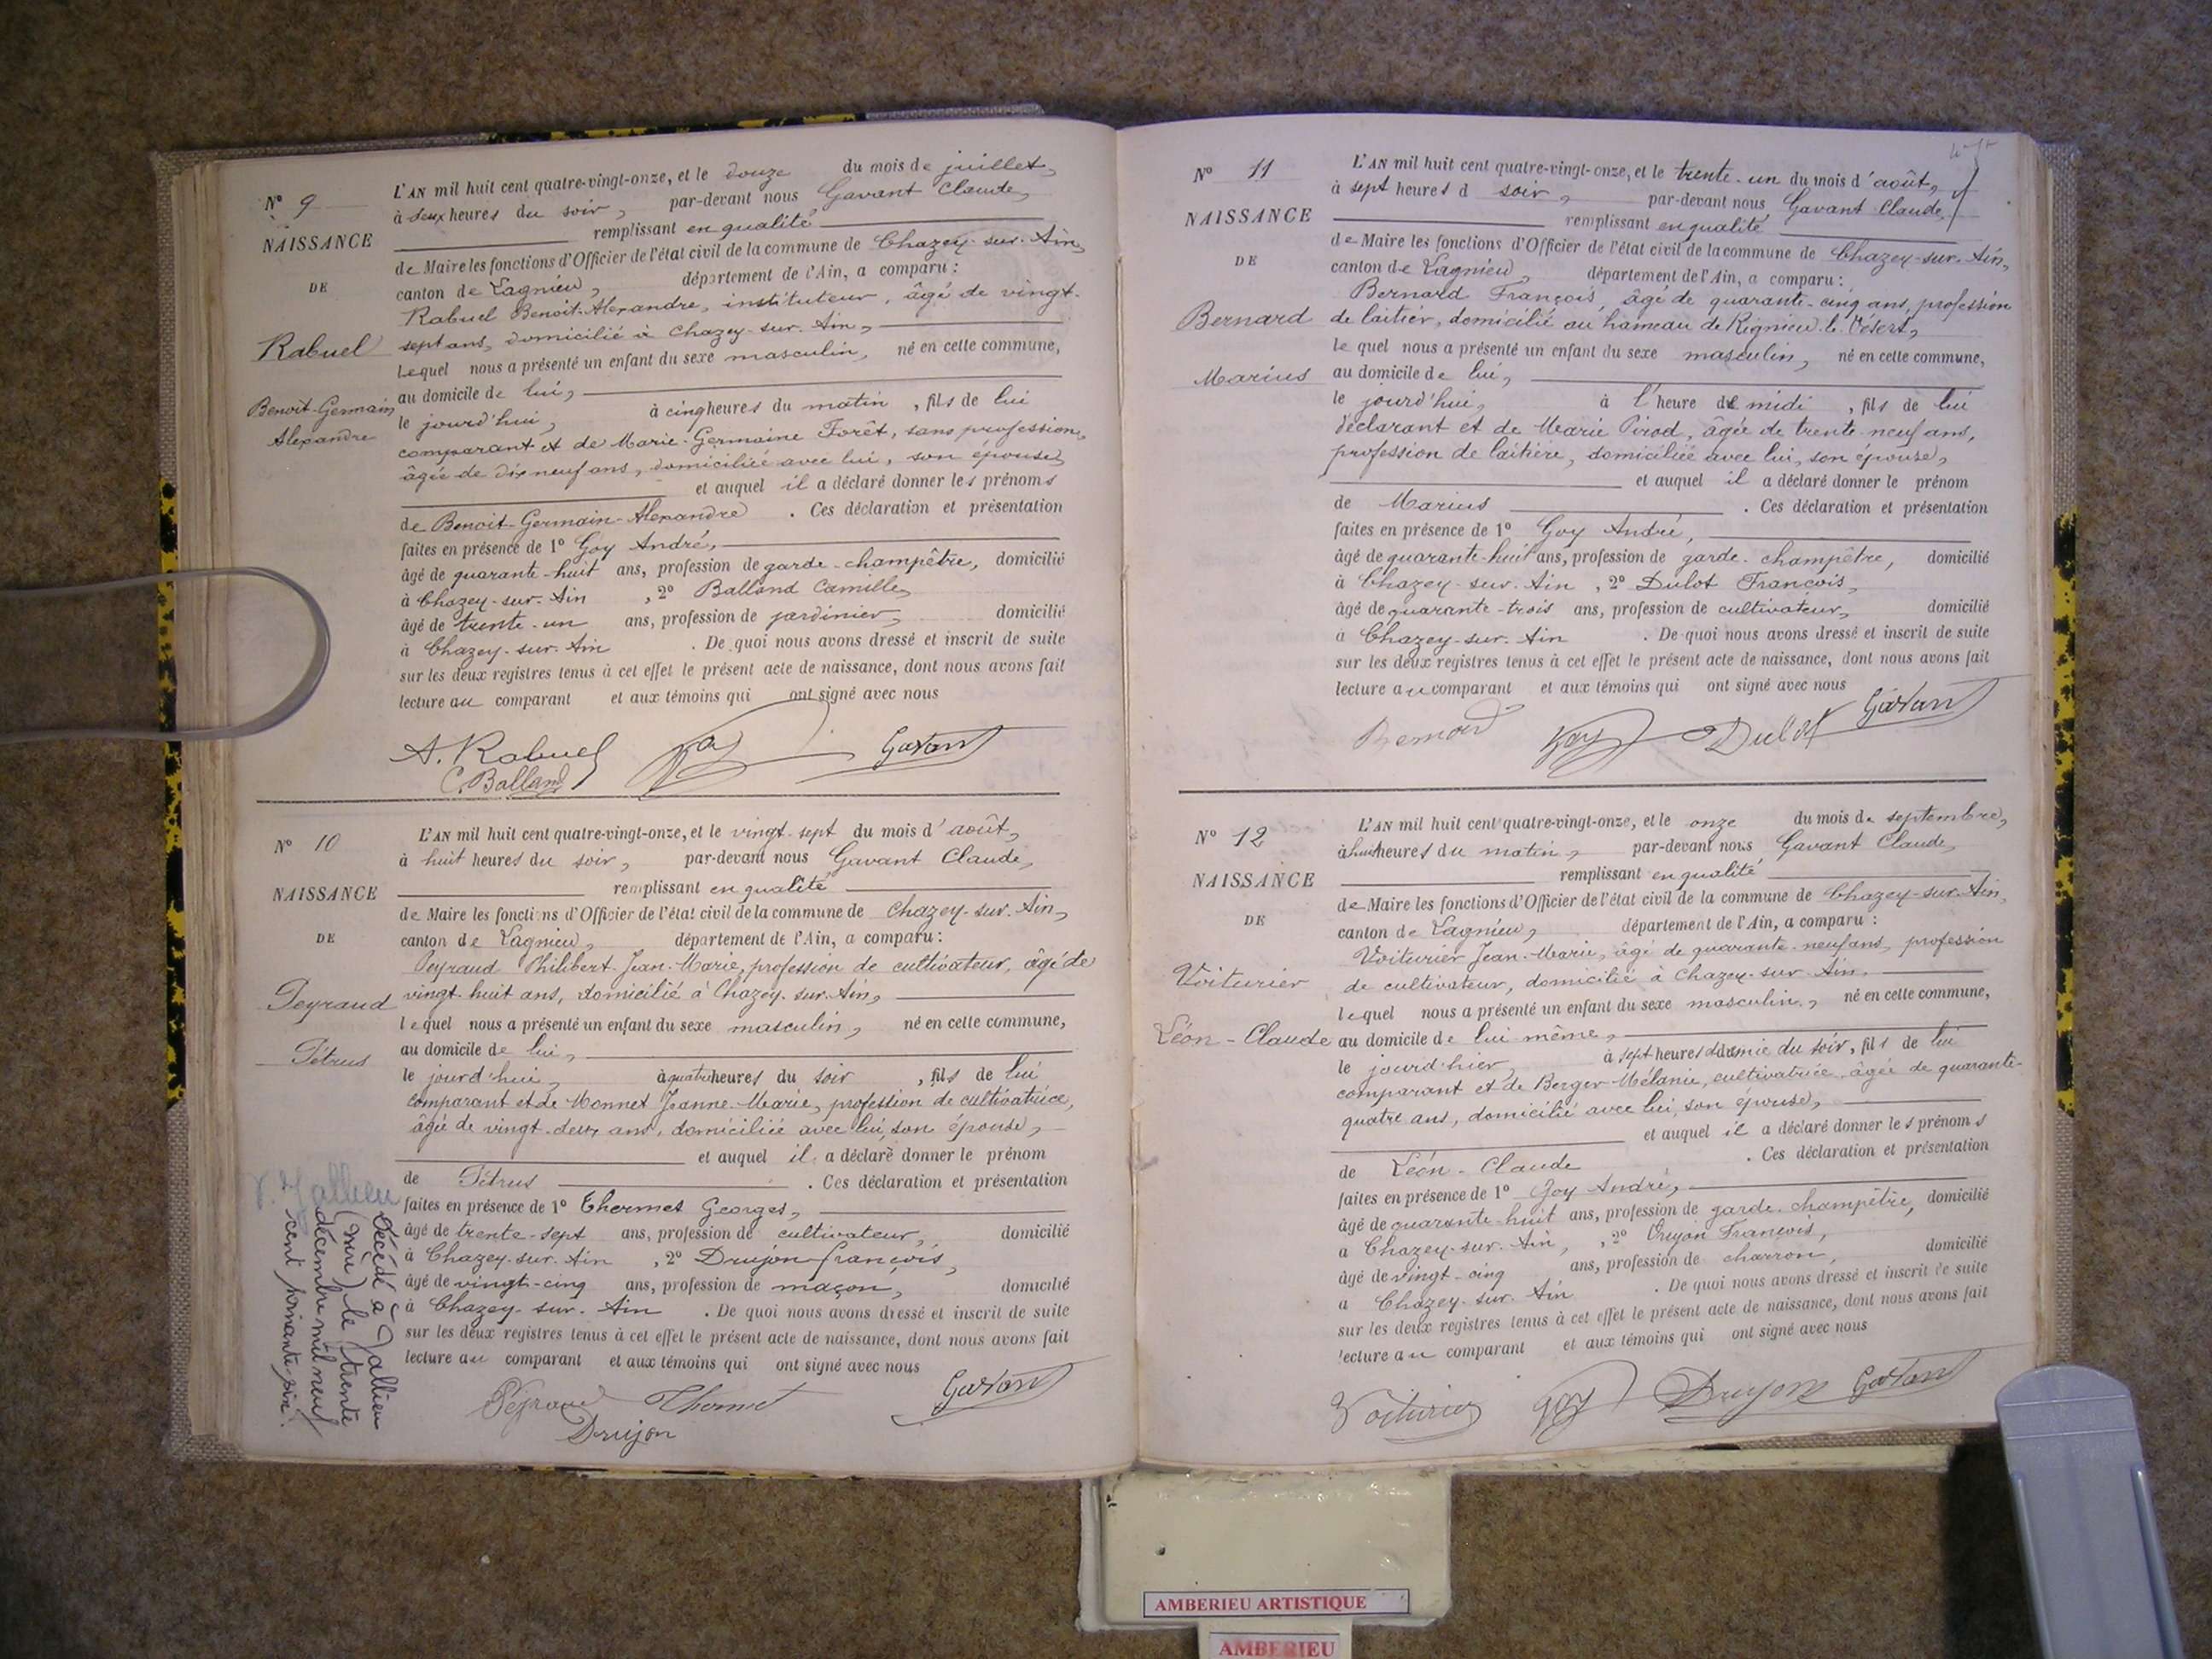 N° 9
NAISSANCE
DE
Rabuel
Benoit-Germain
Alexandre
L'AN mil huit cent quatre-vingt-onze, et le douze du mois de juillet,
à deux heures du soir, par-devant nous Gavant Claude,
remplissant en qualité
de Maire les fonctions d'Officier de l'état civil de la commune de Chazey-sur-Ain,
canton de Lagnieu, département de l'Ain, a comparu :
Rabuel Benoit-Alexandre, instituteur, âgé de vingt-
sept ans, domicilié à Chazey-sur-Ain,
Lequel nous a présenté un enfant du sexe masculin, né en cette commune,
au domicile de lui,
le jourd'hui, à cinq heures du matin, fils de lui
comparant et de Marie-Germaine Forêt, sans profession,
âgée de dix neuf ans, domiciliée avec lui, son épouse,
et auquel il a déclaré donner les prénoms
de Benoit-Germain-Alexandre . Ces déclaration et présentation
faites en présence de 1° Goy André,
âgé de quarante-huit ans, profession de garde-champêtre, domicilié
à Chazey-sur-Ain , 2° Balland Camille,
âgé de trente-un ans, profession de jardinier, domicilié
à Chazey-sur-Ain . De quoi nous avons dressé et inscrit de suite
sur les deux registres tenus à cet effet le présent acte de naissance, dont nous avons fait
lecture au comparant et aux témoins qui ont signé avec nous
A. Rabuel Gavant
C. Balland
N° 10
NAISSANCE
DE
Peyraud
Pétrus
L'AN mil huit cent quatre-vingt-onze, et le vingt-sept du mois d'août,
à huit heures du soir, par-devant nous Gavant Claude,
remplissant en qualité
de Maire les fonctions d'Officier de l'état civil de la commune de Chazey-sur-Ain,
canton de Lagnieu, département de l'Ain, a comparu :
Peyraud Philibert-Jean-Marie, profession de cultivateur, âgé de
vingt-huit ans, domicilié à Chazey-sur-Ain,
lequel nous a présenté un enfant du sexe masculin, né en cette commune,
au domicile de lui,
le jourd'hui, à quatre heures du soir , fils de lui
comparant et de Monnet Jeanne-Marie, profession de cultivatrice,
âgée de vingt-deux ans, domiciliée avec lui, son épouse,
et auquel il a déclaré donner le prénom
de Pétrus . Ces déclaration et présentation
faites en présence de 1° Thermet Georges,
âgé de trente-sept ans, profession de cultivateur, domicilié
à Chazey-sur-Ain , 2° Drujon françois,
âgé de vingt-cinq ans, profession de maçon, domicilié
à Chazey-sur-Ain . De quoi nous avons dressé et inscrit de suite
sur les deux registres tenus à cet effet le présent acte de naissance, dont nous avons fait
lecture au comparant et aux témoins qui ont signé avec nous
Peyraud Gavant
Drujon
Décédé à Jallieu
le trente
décembre mil neuf
cent soixante six.
N° 11
NAISSANCE
DE
Bernard
Marius
L'AN mil huit cent quatre-vingt-onze, et le trente-un du mois d'août,
à sept heures d soir, par-devant nous Gavant Claude,
remplissant en qualité
de Maire les fonctions d'Officier de l'état civil de la commune de Chazey-sur-Ain,
canton de Lagnieu, département de l'Ain, a comparu :
Bernard François, âgé de quarante-cinq ans, profession
de laitier, domicilié au hameau de Rignieu-le-Désert,
Le quel nous a présenté un enfant du sexe masculin, né en cette commune,
au domicile de lui,
le jourd'hui, à l'heure de midi , fils de lui
déclarant et de Marie Pirod, âgée de trente-neuf ans,
profession de laitière, domiciliée avec lui, son épouse,
et auquel il a déclaré donner le prénom
de Marius . Ces déclaration et présentation
faites en présence de 1° Goy André,
âgé de quarante-huit ans, profession de garde-champêtre, domicilié
à Chazey-sur-Ain , 2° Dulot François,
âgé de quarante-trois ans, profession de cultivateur, domicilié
à Chazey-sur-Ain . De quoi nous avons dressé et inscrit de suite
sur les deux registres tenus à cet effet le présent acte de naissance, dont nous avons fait
lecture au comparant et aux témoins qui ont signé avec nous
Bernard Goy Dulot Gavant
N° 12
NAISSANCE
DE
Voiturier
Léon-Claude
L'AN mil huit cent quatre-vingt-onze, et le onze du mois de septembre,
à huit heures du matin, par-devant nous Gavant Claude,
remplissant en qualité
de Maire les fonctions d'Officier de l'état civil de la commune de Chazey-sur-Ain,
canton de Lagnieu, département de l'Ain, a comparu :
Voiturier Jean-Marie, âgé de quarante-neuf ans, profession
de cultivateur, domicilié à Chazey-sur-Ain,
lequel nous a présenté un enfant du sexe masculin, né en cette commune,
au domicile de lui même,
le jourd'hier, à sept heures demie du soir, fils de lui
comparant et de Berger Mélanie, cultivatrice, âgée de quarante-
quatre ans, domicilié avec lui, son épouse,
et auquel il a déclaré donner les prénoms
de Léon-Claude . Ces déclaration et présentation
faites en présence de 1° Goy André,
âgé de quarante-huit ans, profession de garde-champêtre, domicilié
a Chazey-sur-Ain, , 2° Drujon François,
âgé de vingt-cinq ans, profession de charron, domicilié
a Chazey-sur-Ain . De quoi nous avons dressé et inscrit de suite
sur les deux registres tenus à cet effet le présent acte de naissance, dont nous avons fait
lecture au comparant et aux témoins qui ont signé avec nous
Voiturier Goy Drujon Gavant
AMBERIEU ARTISTIQUE
AMBERIEU